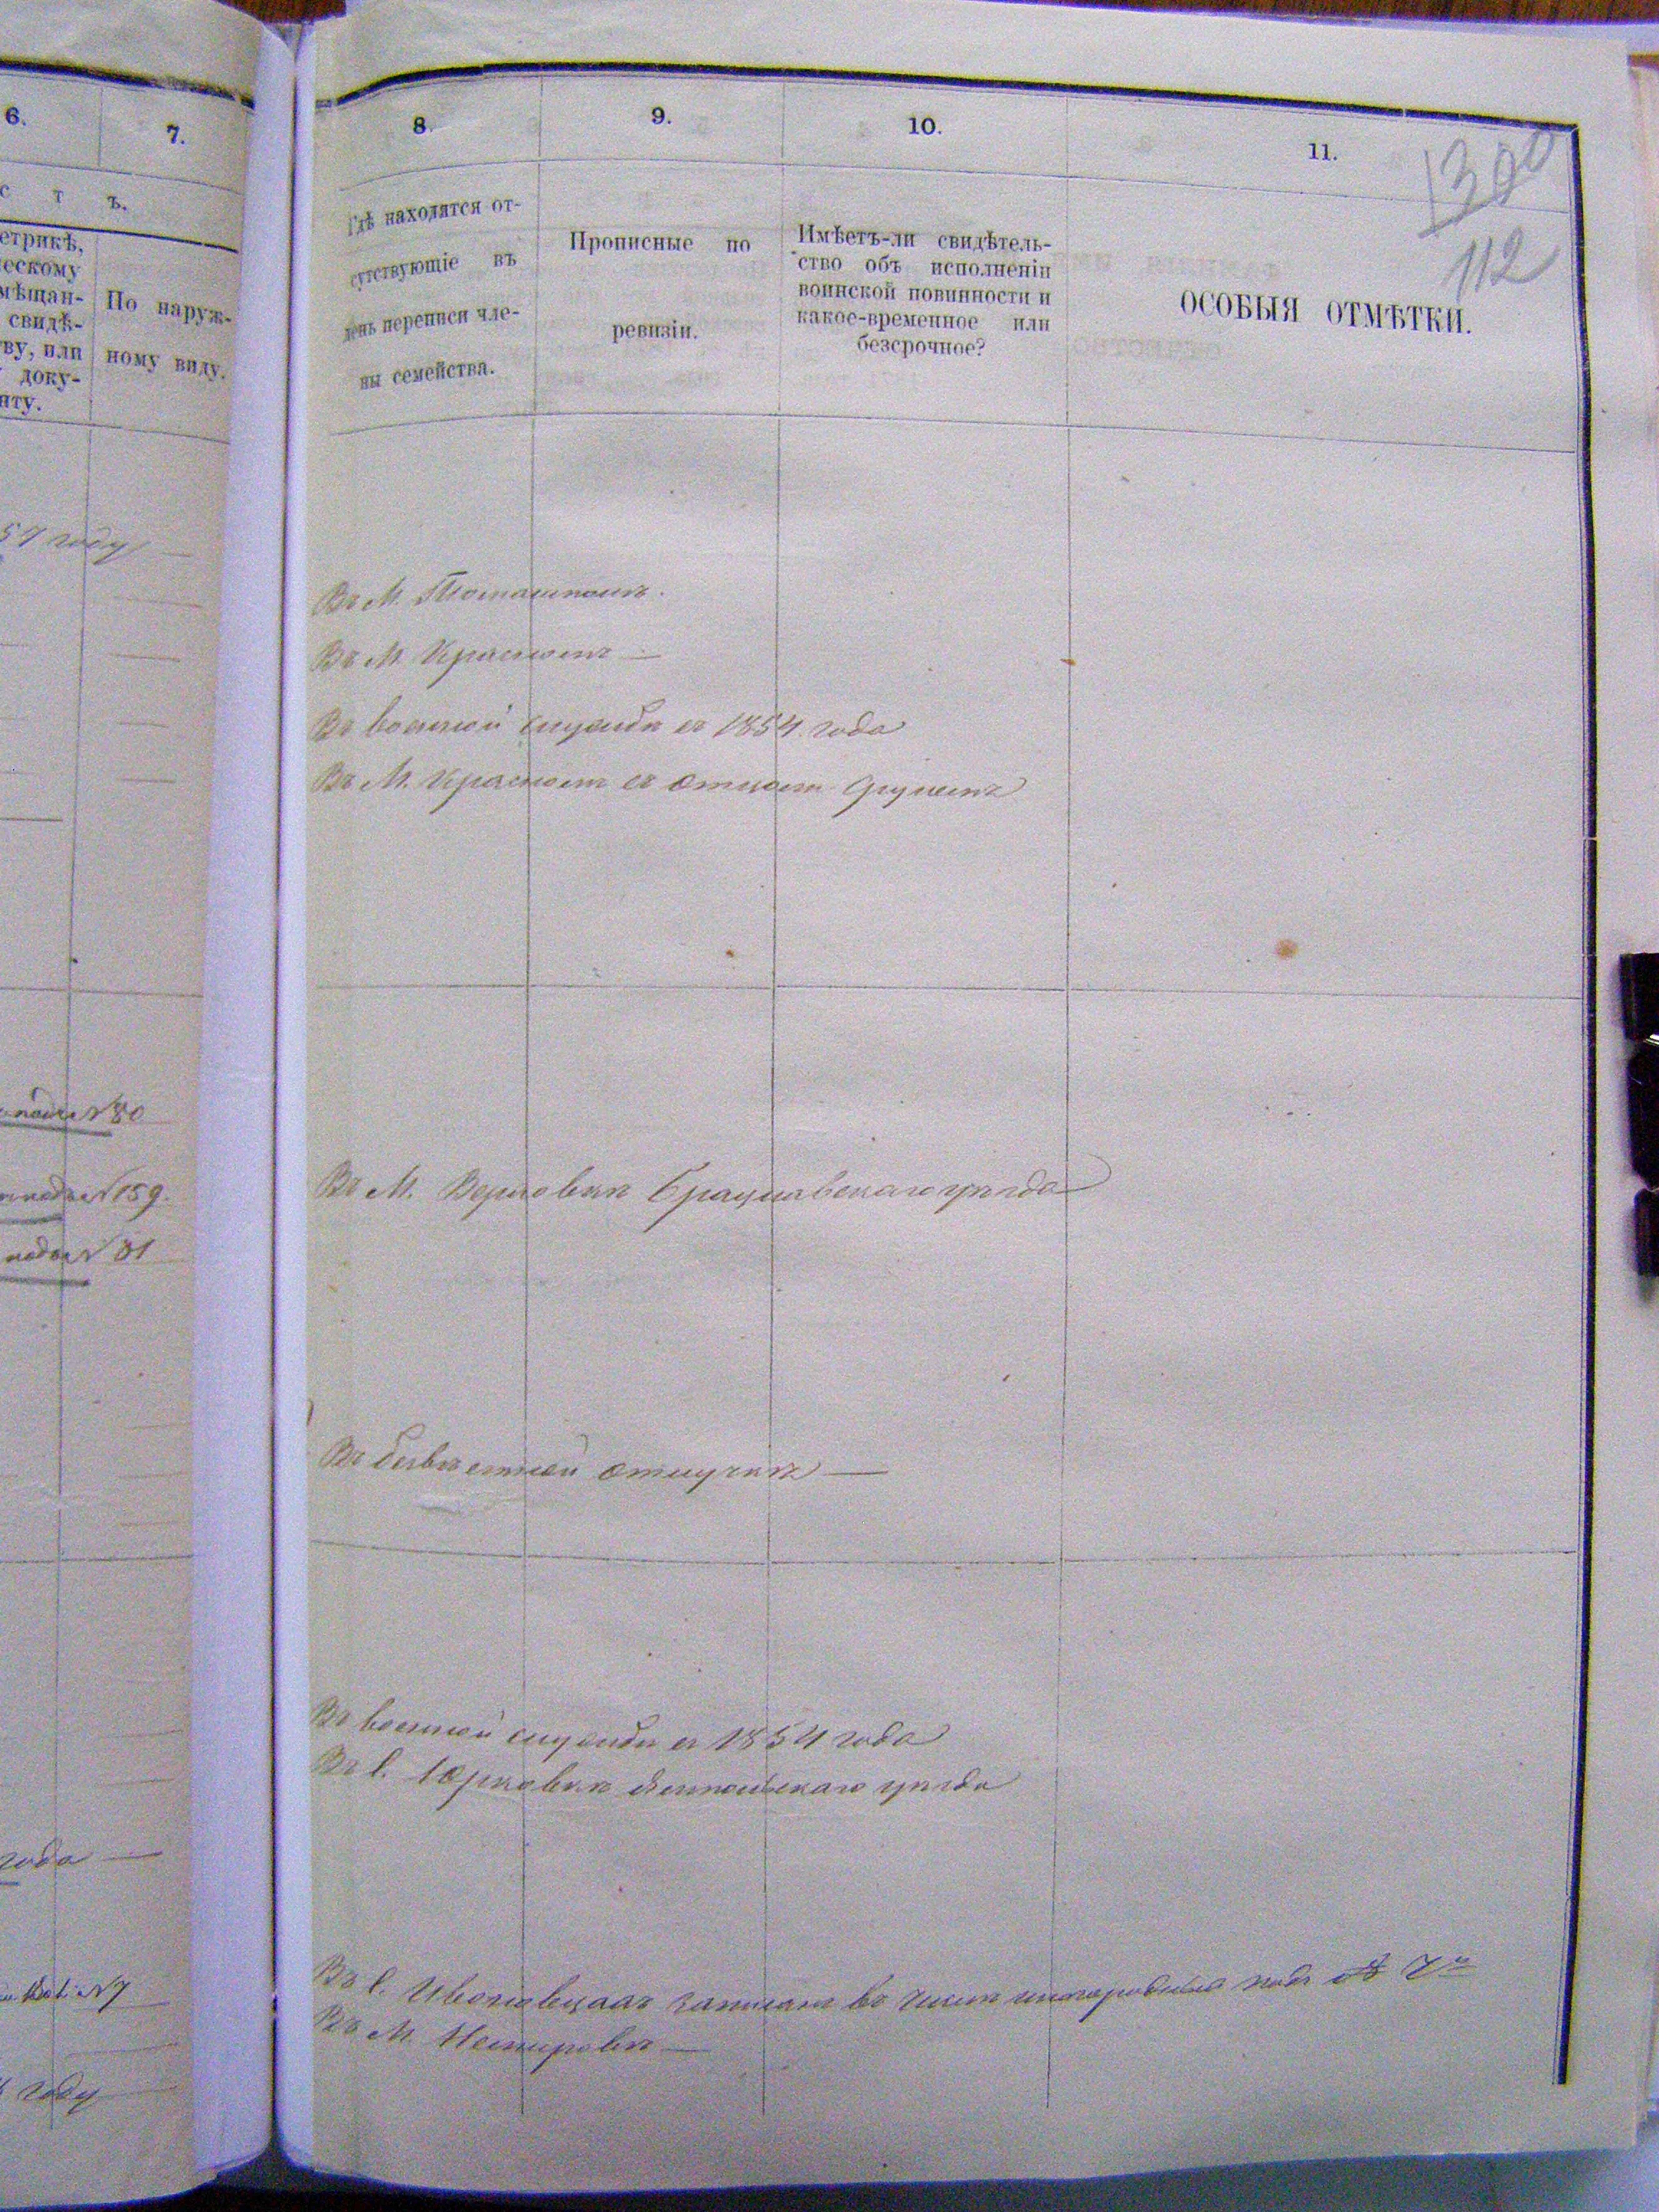 6.
7.
с т ъ.
етрикѣ,
ческому
мѣщан-
свидѣ-
ву, или
доку-
нту.
По наруж-
ному виду.
57 году
подъ №80
подъ №159.
подъ №81
года
№7
году
8.
9.
10.
11.
130
112
Гдѣ находятся от-
сутствующіе въ
день переписи чле-
ны семейства.
Прописные по
ревизіи.
Имѣетъ-ли свидѣтель-
ство объ исполненіи
воинской повинности и
какое-временное или
безсрочное?
ОСОБЫЯ ОТМѢТКИ.
Въ М. Томашполѣ.
Въ М. Красномъ
Въ военной службѣ съ 1854 года
Въ М. Красномъ съ отцомъ
Въ М. Верховкѣ Брацлавскаго уѣзда
Въ безвѣстной отлучкѣ
Въ военной службѣ съ 1854 года
Въ с. Юрковкѣ уѣзда
Въ с. записанъ въ числѣ подъ № 7
Въ М. Немировѣ